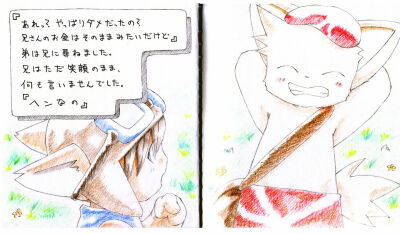 『あれって やっぱりダメだったの？
兄さんのお金はそのままみたいだけど』
弟は兄に尋ねました。
兄はただ笑顔のまま、
何も言いませんでした。
『ヘンなの』